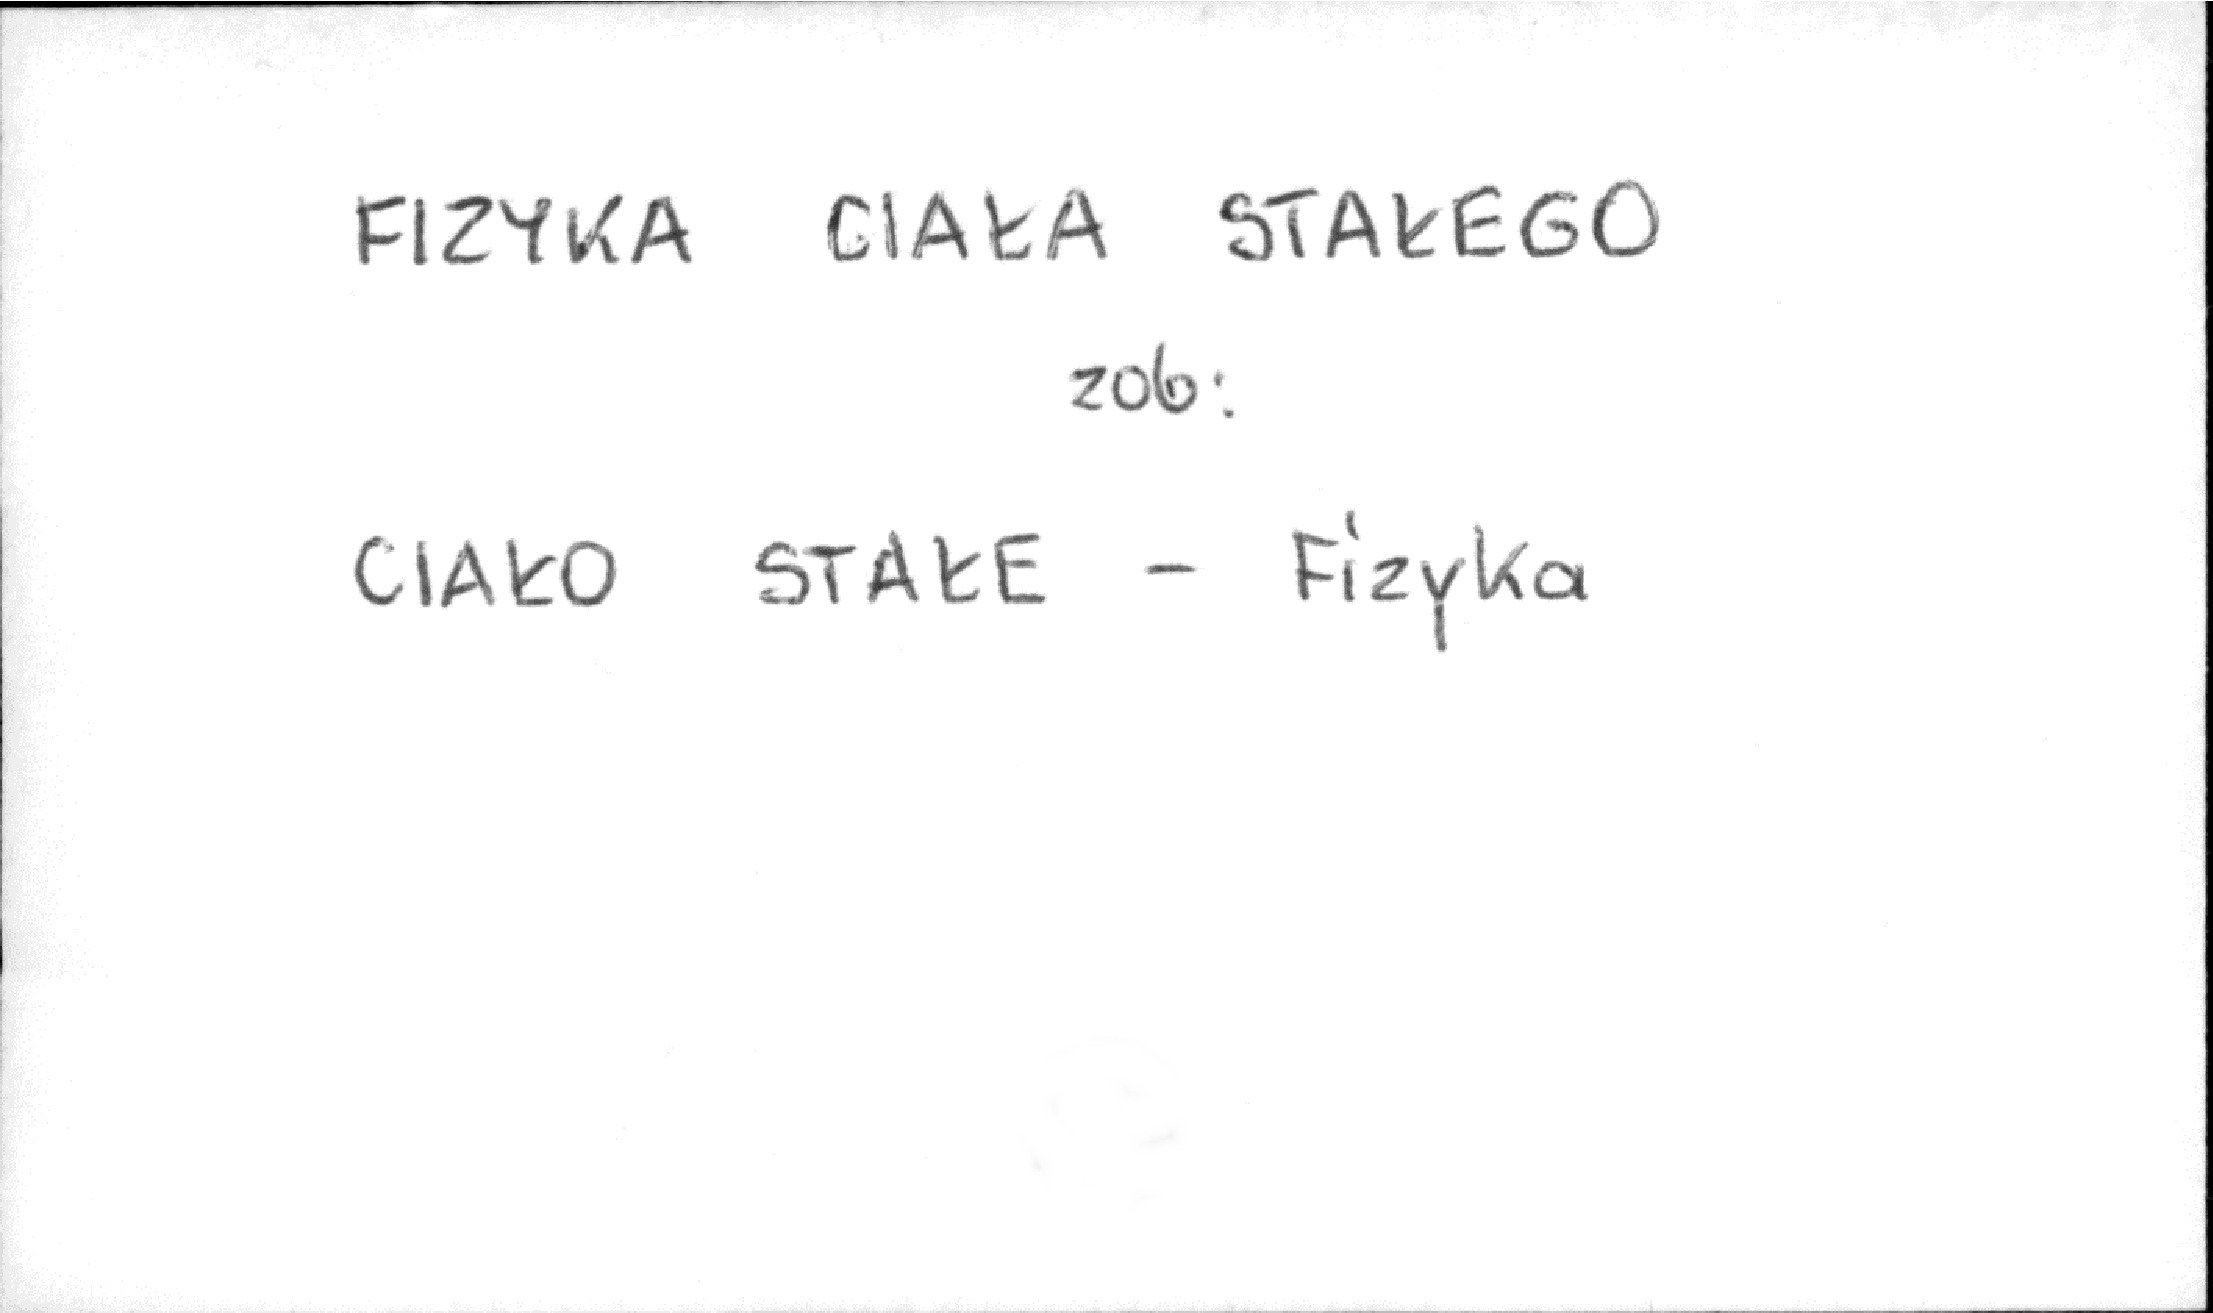 FIZYKA CIAŁA STAŁEGO
zob:
CIAŁO STAŁE - Fizyka